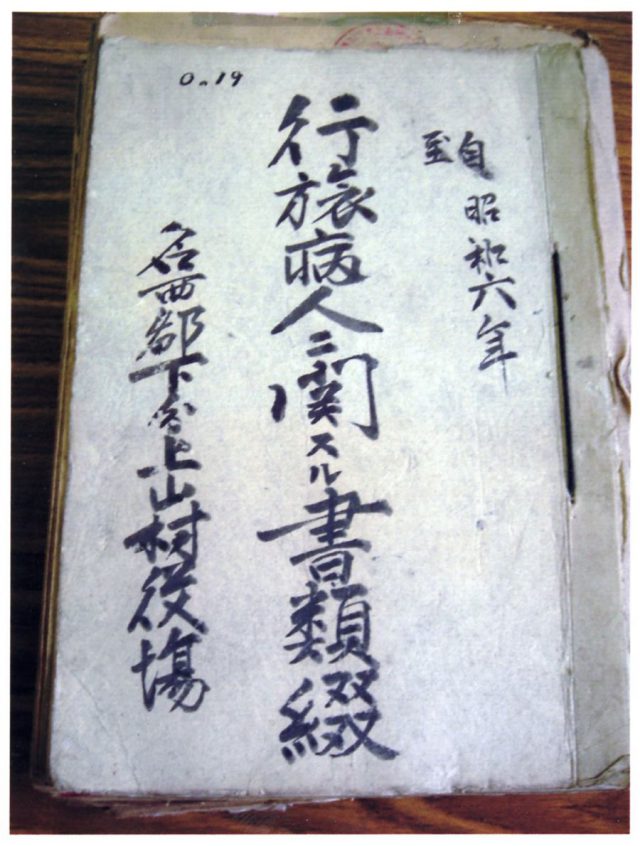 自 昭和六年
至
行旅病人ニ関スル書類綴
名西郡下分上山村役場
0.19